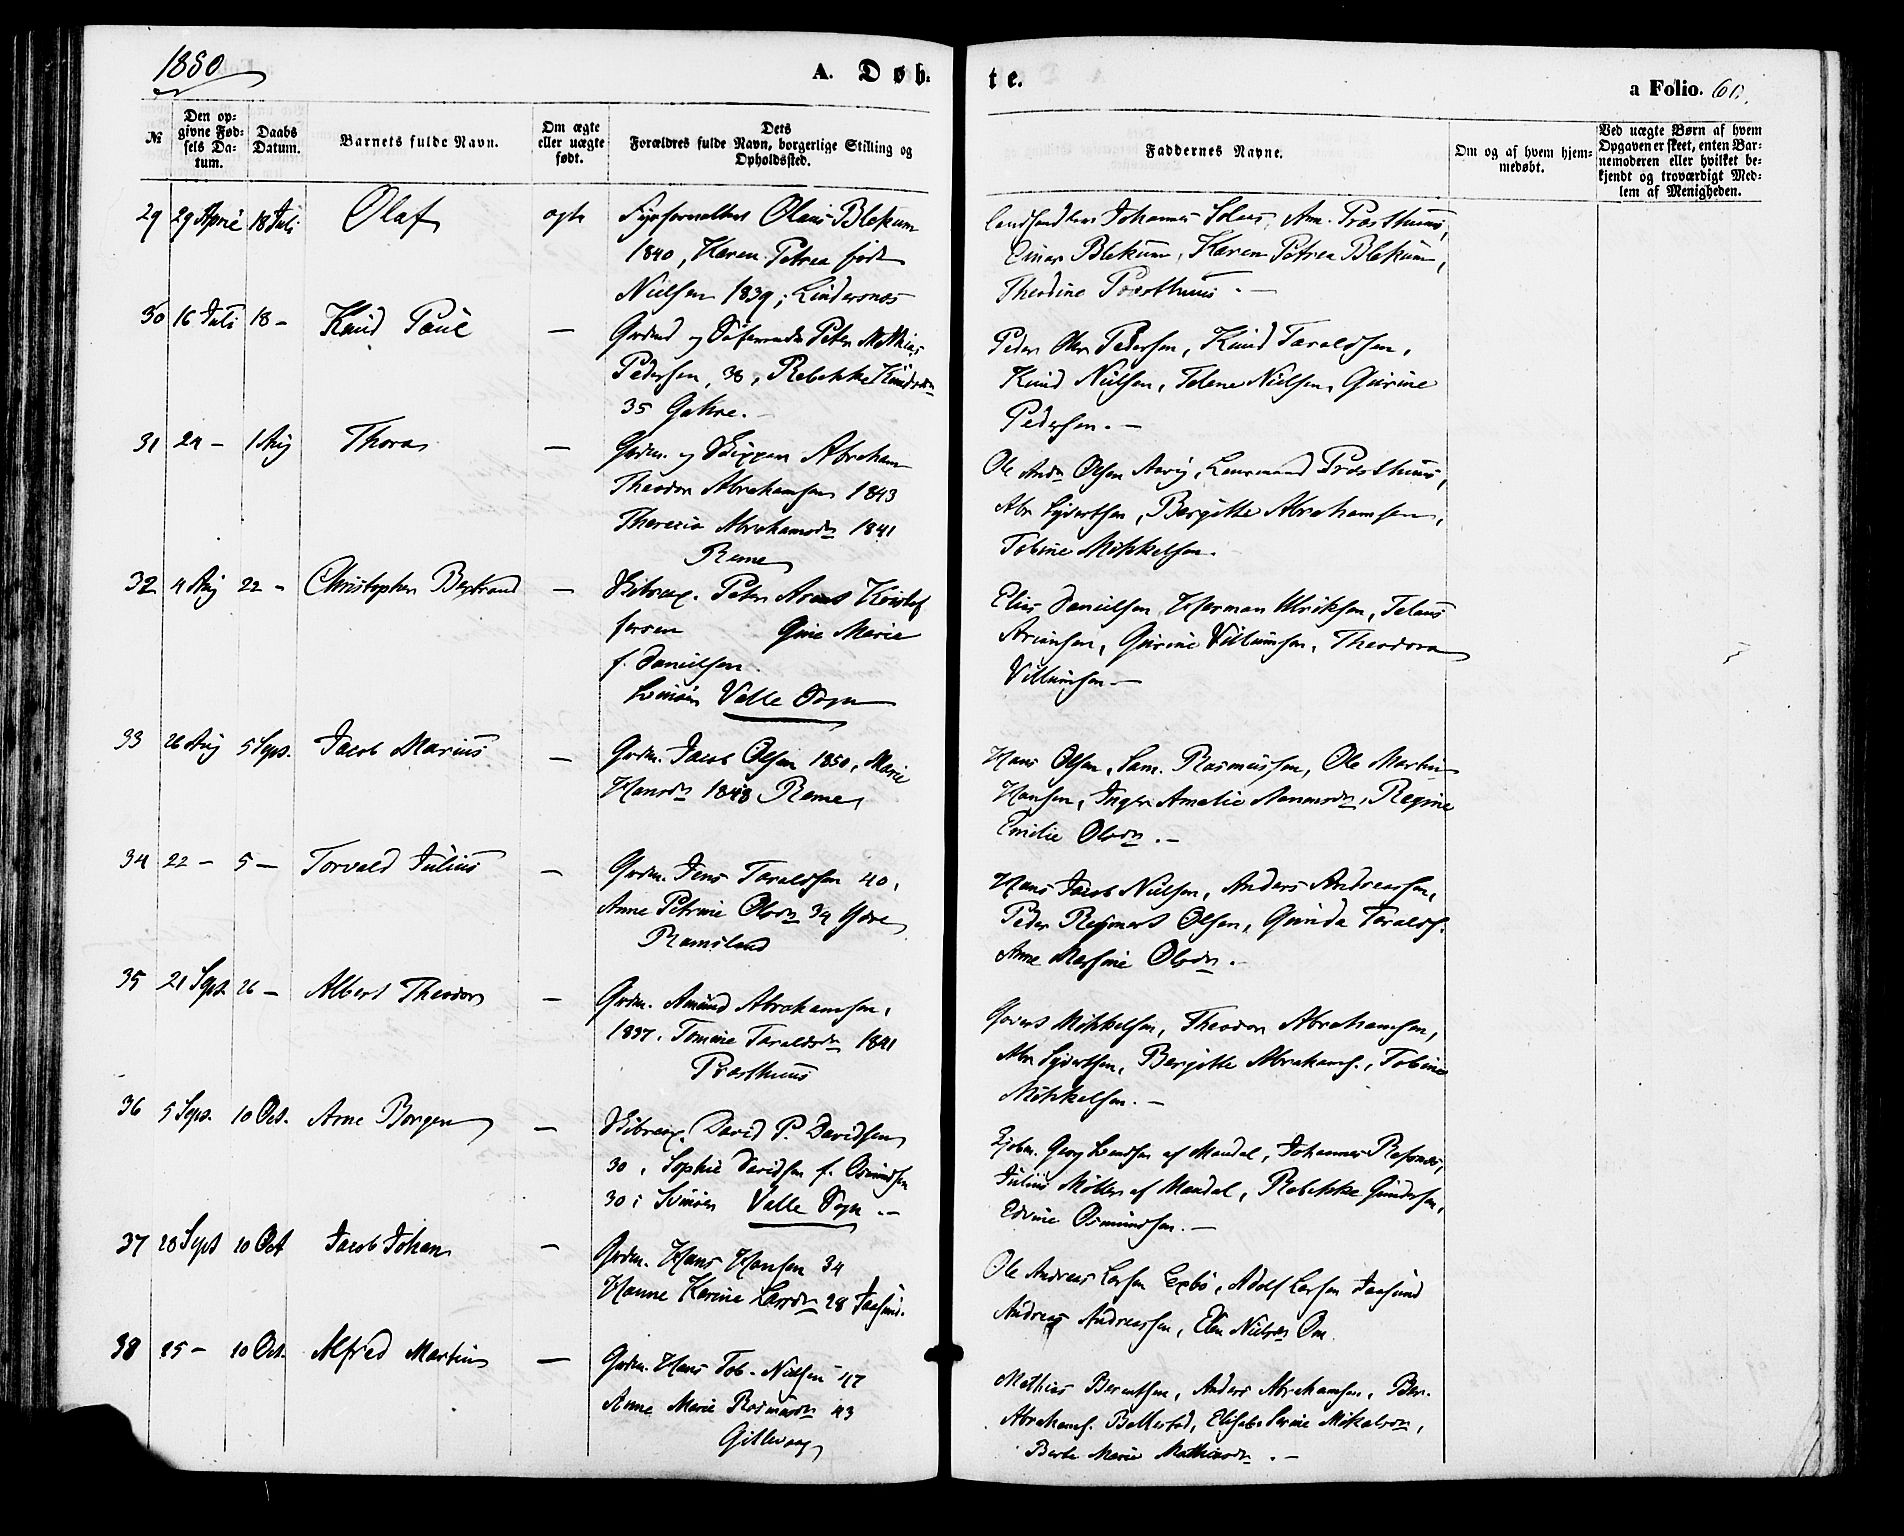 1880
A. Døb-
te.
a Folio. 60.
№
Den op-
givne Fød-
sels Da-
tum.
Daabs
Datum.
Barnets fulde Navn.
Om ægte
eller uægte
født.
Dets
Forældres fulde Navn, borgerlige Stilling og
Opholdssted.
Faddernes Navne.
Om og af hvem hjem-
medøbt.
Ved uægte Børn af hvem
Opgaven er skeet, enten Bar-
nemoderen eller hvilket be-
kjendt og troværdigt Med-
lem af Menigheden.
29 29 April 18 Juli Olaf ægte Fyrforvalter Olaus Blekum
1840, Karen Petrea født
Nielsen 1839; Lindesnæs
Landhandler Johannes, Am. Præsthuus,
Einar Blekum, Karen Petrea Blekum,
Theodine Præsthuus. —
30 16 Juli 18 — Knud Paul — Gaardmd og Peter Mathias
Pedersen, 38, Rebekke Knudsdr
35 Gahre. —
Peder Chr Pedersen, Knud Taraldsen,
Knud Nielsen, Tolene Nielsen, Gurine
Pedersen. —
31 24 — 1 Aug Thora — Grdm. og Skipper Abraham
Theodor Abrahamsen 1843
Theresia Abrahamsdr 1841
Reme
Ole Andr Olsen Aavig, Præsthuus,
Abr Syvertsen, Bergitte Abrahamsen,
Tobine Mikkelsen.
32 4 Aug 22 — Christopher Bertrand — Skibrex. Peter Arent Kristof
fersen Gine Marie
f. Danielsen.
Svinøer Valle Sogn
Elias Danielsen, Herman Ulriksen, Telaus
Gurine Villumsen, Theodora
Villumsen —
33 26 Aug 5 Sept. Jacob Marius — Grdm. Jacob Olsen 1850, Marie
Hansdr 1848 Reme
Hans Olsen, Sam. Rasmussen, Ole Martin
Hansen, Inger Amalie, Regine
Emilie Olsdr. —
34 22 — 5 — Torvald Julius — Grdm. Jens Taraldsen 40,
Anne Petrine Olsdr 34 Ydre
Ramsland
Hans Jacob Nielsen, Anders Andreassen,
Peder Regnert Olsen, Gunda Taralds.
Anne Olsdr. —
35 21 Sept. 26 — Albert Theodor — Grdm. Amund Abrahamsen,
1837. Tomine Taraldsdr 1841
Præsthuus
Govert Mikkelsen, Theodor Abrahamsen,
Abr Syvertsen, Bergitte Abrahams., Tobine
Mikkelsen. —
36 5 Sept. 10 Oct. Arne Borgen — Skibrex. David P. Davidsen
30, Sophie Davidsen f. Osmundsen
30; Svinøer Valle Sogn. —
Kjøbm. Georg af Mandal, Johannes Rafoss,
Julius Møller af Mandal, Rebekke Gundersen,
Edvine Osmundsen. —
37 28 Sept 10 Oct Jacob Johan — Grdm. Hans Hansen 34
Hanne Karine Larsdr 28 Jaasund.
Ole Andreas Larsen, Adolf Larsen Jaasund
Andreas Andreassen, Elen Nielsdr Om.
38 25 — 10 Oct. Alfred Martin — Grdm. Hans Tob. Nielsen 47
Anne Marie Rasmusdr 43
Gitlevaag
Mathias Berentsen, Anders Abrahamsen, Ber.
Abrahams. Ballestad, Elisabe Serine Mikalsdr,
Berte Marie Mathiasdr. —